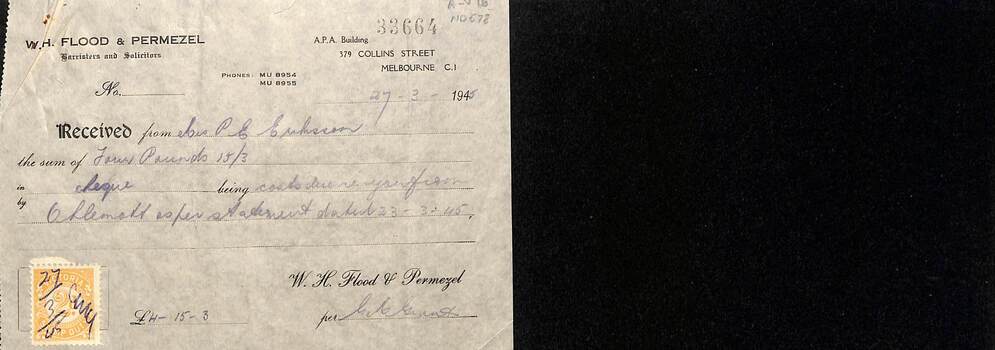 33664
No 578
W.H. FLOOD & PERMEZEL
Barristers and Solicitors
A.P.A. Building
379 COLLINS STREET
MELBOURNE C.1
PHONES: MU 8954
MU 8955
No.
27 - 3 - 1945
Received from P E Eriksson
the sum of Four Pounds 15/3
in cheque being costs due re
by as per statement dated 23-3-45.
W. H. Flood & Permezel
£4-15-3
per
VICTORIA
STAMP DUTY
27/3/45